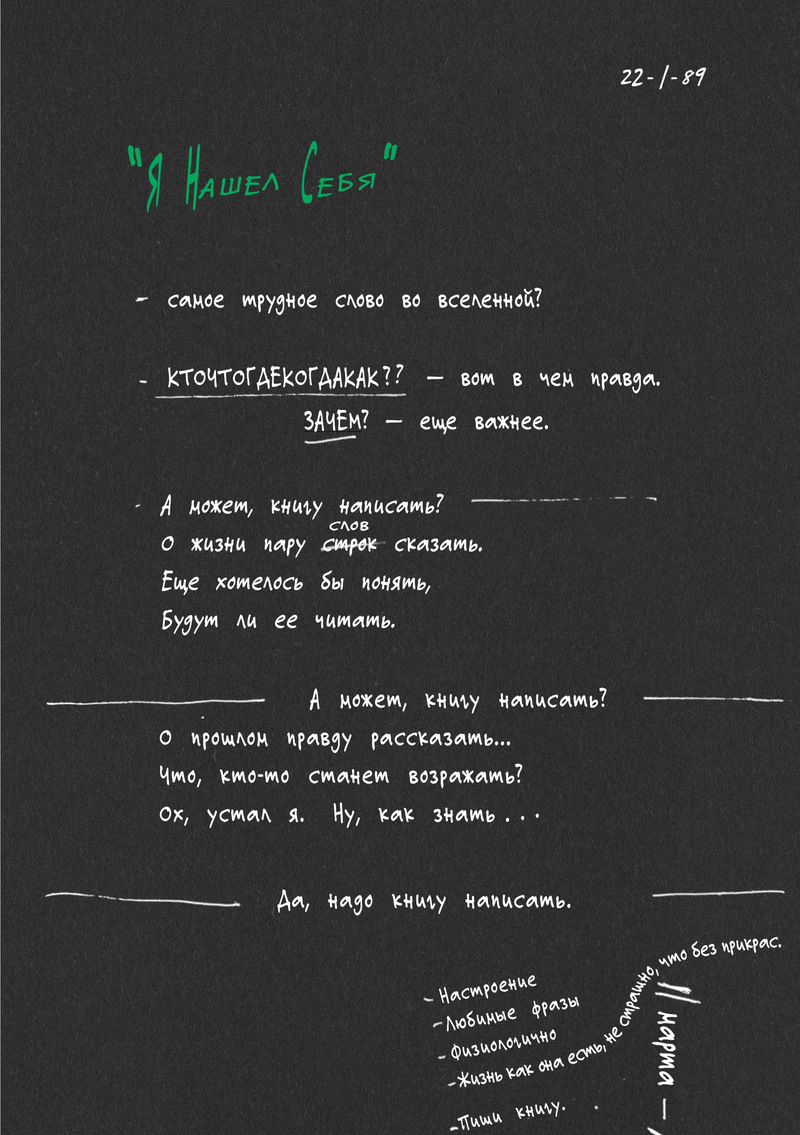 22-/-89
"Я Нашел Себя"
- самое трудное слово во вселенной?
- КТОЧТОГДЕКОГДАКАК?? — вот в чем правда.
ЗАЧЕМ? — еще важнее.
- А может, книгу написать?
слов
О жизни пару строк сказать.
Еще хотелось бы понять,
Будут ли ее читать.
А может, книгу написать?
О прошлом правду рассказать...
Что, кто-то станет возражать?
Ох, устал я. Ну, как знать...
Да, надо книгу написать.
- Настроение
- Любимые фразы
- Физиологично
- Жизнь как она есть, не страшно, что без прикрас.
- Пиши книгу.
11 марта —